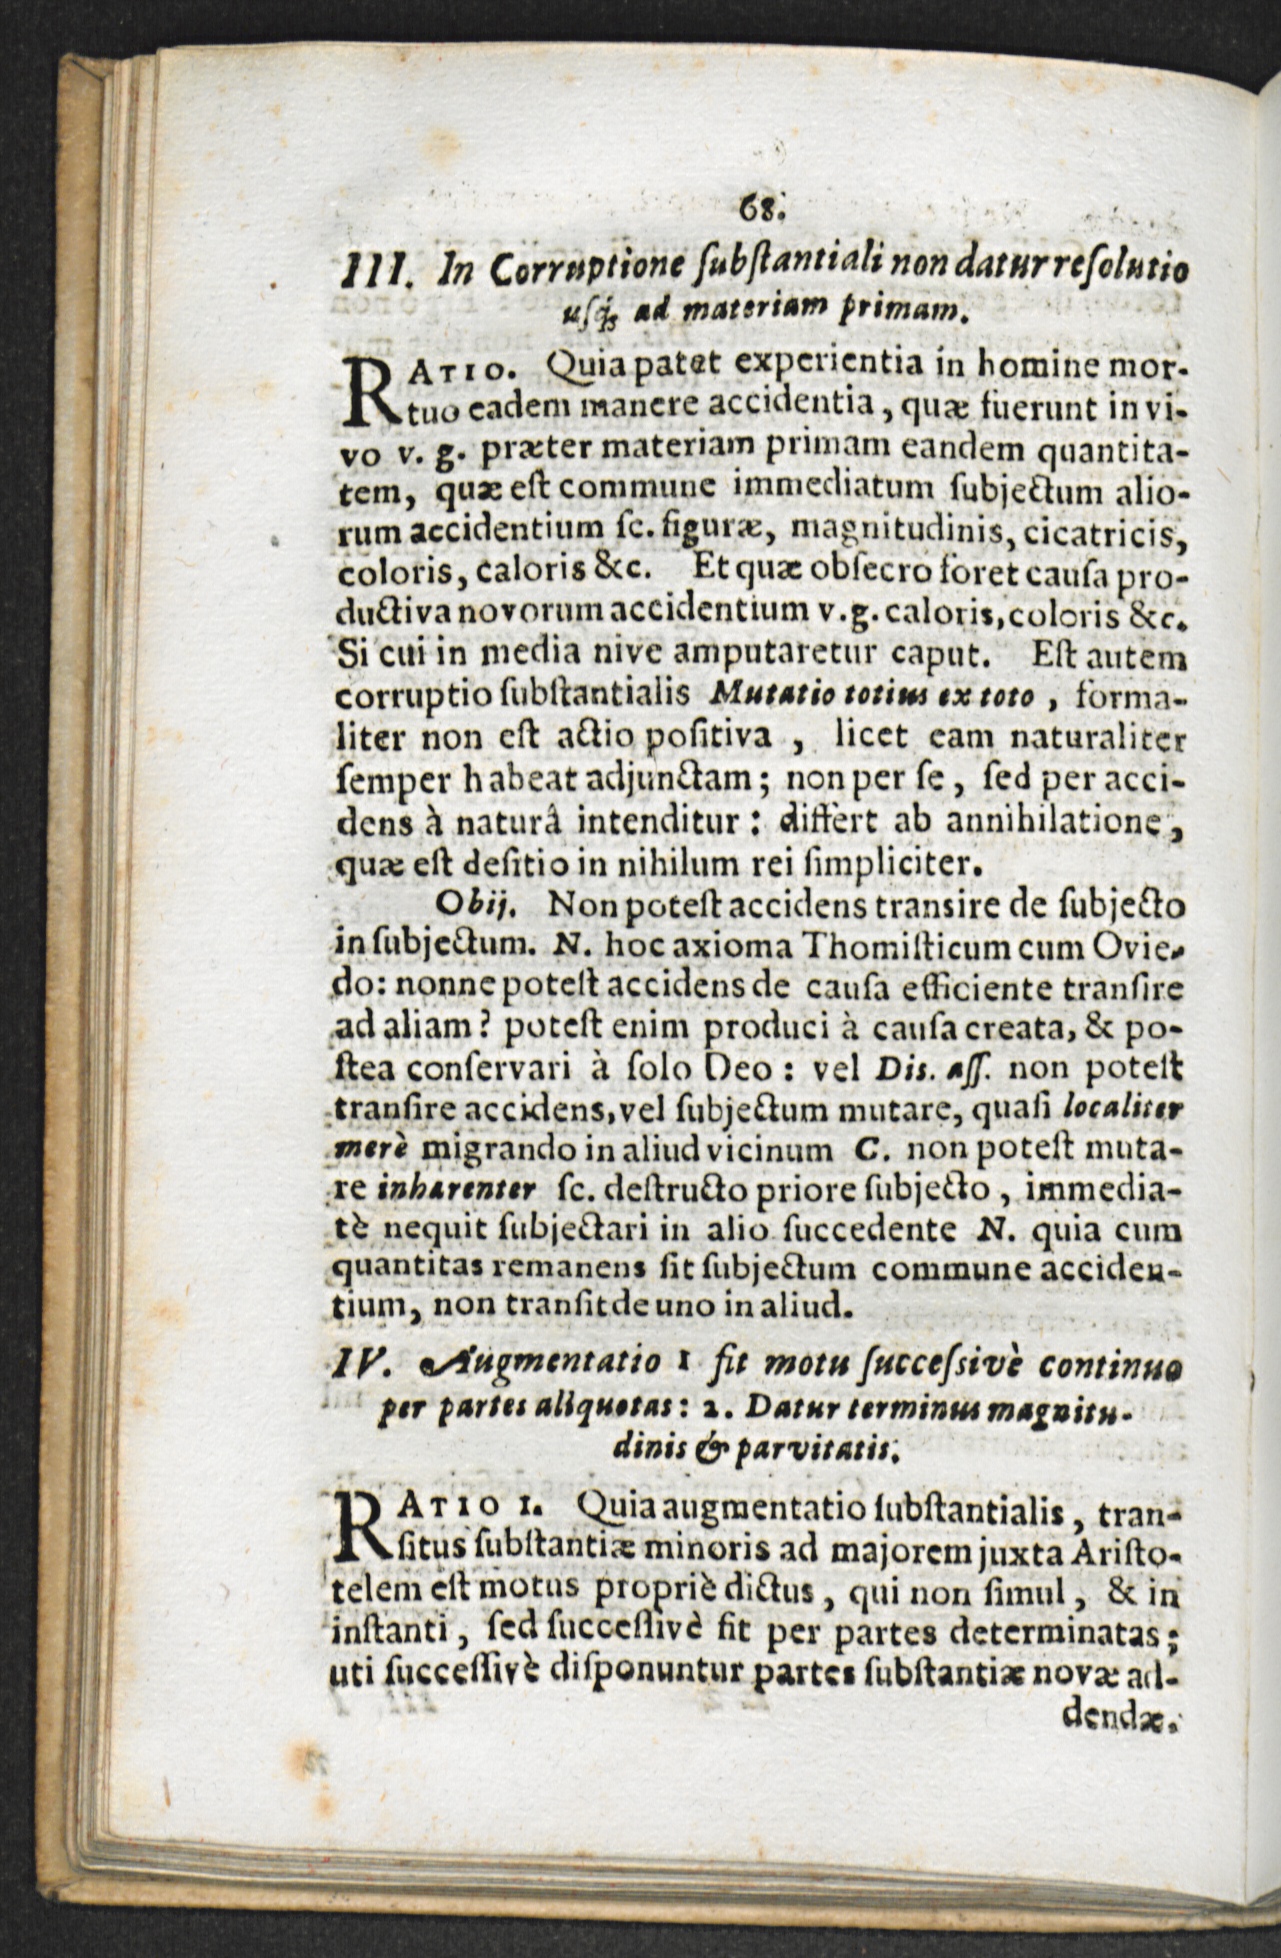 68.
III. In Corruptione ſubſtantiali non datur reſolutio
uſq; ad materiam primam.
RATIO. Quia patet experientia in homine mor-
tuo eadem manere accidentia, quæ fuerunt in vi-
vo v. g. præter materiam primam eandem quantita-
tem, quæ eſt commune immediatum ſubjectum alio-
rum accidentium ſc. figuræ, magnitudinis, cicatricis,
coloris, caloris &c. Et quæ obſecro foret cauſa pro-
ductiva novorum accidentium v. g. caloris, coloris &c.
Si cui in media nive amputaretur caput. Eſt autem
corruptio ſubſtantialis Mutatio totius ex toto, forma-
liter non eſt actio poſitiva, licet eam naturaliter
ſemper habeat adjunctam; non per ſe, ſed per acci-
dens à naturâ intenditur: differt ab annihilatione,
quæ eſt deſitio in nihilum rei ſimpliciter.
Obij. Non poteſt accidens transire de ſubjecto
in ſubjectum. N. hoc axioma Thomiſticum cum Ovie-
do: nonne poteſt accidens de cauſa efficiente tranſire
ad aliam? poteſt enim produci à cauſa creata, & po-
ſtea conſervari à ſolo Deo: vel Dis. aſſ. non poteſt
tranſire accidens, vel ſubjectum mutare, quaſi localiter
merè migrando in aliud vicinum C. non poteſt muta-
re inhærenter ſc. deſtructo priore ſubjecto, immedia-
tè nequit ſubjectari in alio ſuccedente N. quia cum
quantitas remanens ſit ſubjectum commune acciden-
tium, non tranſit de uno in aliud.
IV. Augmentatio 1 fit motu ſucceſsivè continuo
per partes aliquotas: 2. Datur terminus magnitu-
dinis & parvitatis.
RATIO 1. Quia augmentatio ſubſtantialis, tran-
ſitus ſubſtantiæ minoris ad majorem juxta Ariſto-
telem eſt motus propriè dictus, qui non ſimul, & in
inſtanti, ſed ſucceſſivè fit per partes determinatas;
uti ſucceſſivè diſponuntur partes ſubſtantiæ novæ ad-
dendæ.